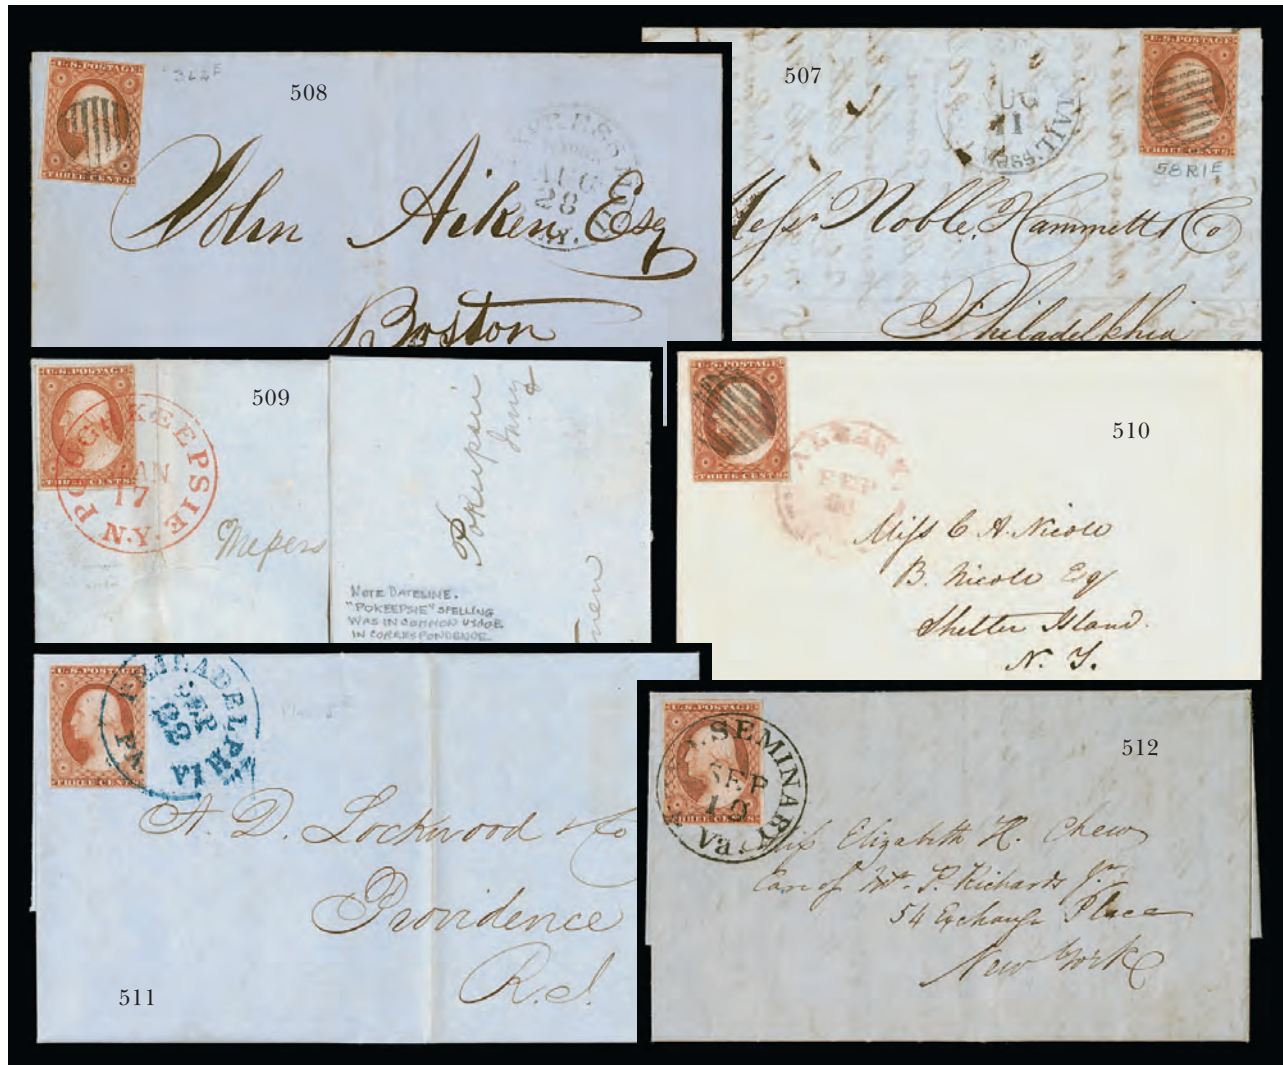 508
U.S. POSTAGE
THREE CENTS
EXPRESS MAIL
N. YORK
AUG
28
N.Y.
John Aiken, Esq
Boston
507
U.S. POSTAGE
THREE CENTS
58R1E
MAIL.
AUG
11
MASS.
Mess. Noble, Hammett & Co
Philadelphia
509
U.S. POSTAGE
THREE CENTS
POUGHKEEPSIE
JAN
17
N.Y.
Messers
Pokeepsie
NOTE DATELINE.
"POKEEPSIE" SPELLING
WAS IN COMMON USAGE
IN CORRESPONDENCE
510
U.S. POSTAGE
THREE CENTS
SEP
Miss C A. Nicole
B. Nicole Esq
Shelter Island.
N. Y.
U.S. POSTAGE
THREE CENTS
PHILADELPHIA
SEP
22
PA
A. D. Lockwood & Co
Providence
R.I.
511
512
U.S. POSTAGE
THREE CENTS
SEMINARY
SEP
Va.
Miss Elizabeth H. Chew
Care of Mr. P. Richards Jr.
54 Exchange Place
New York